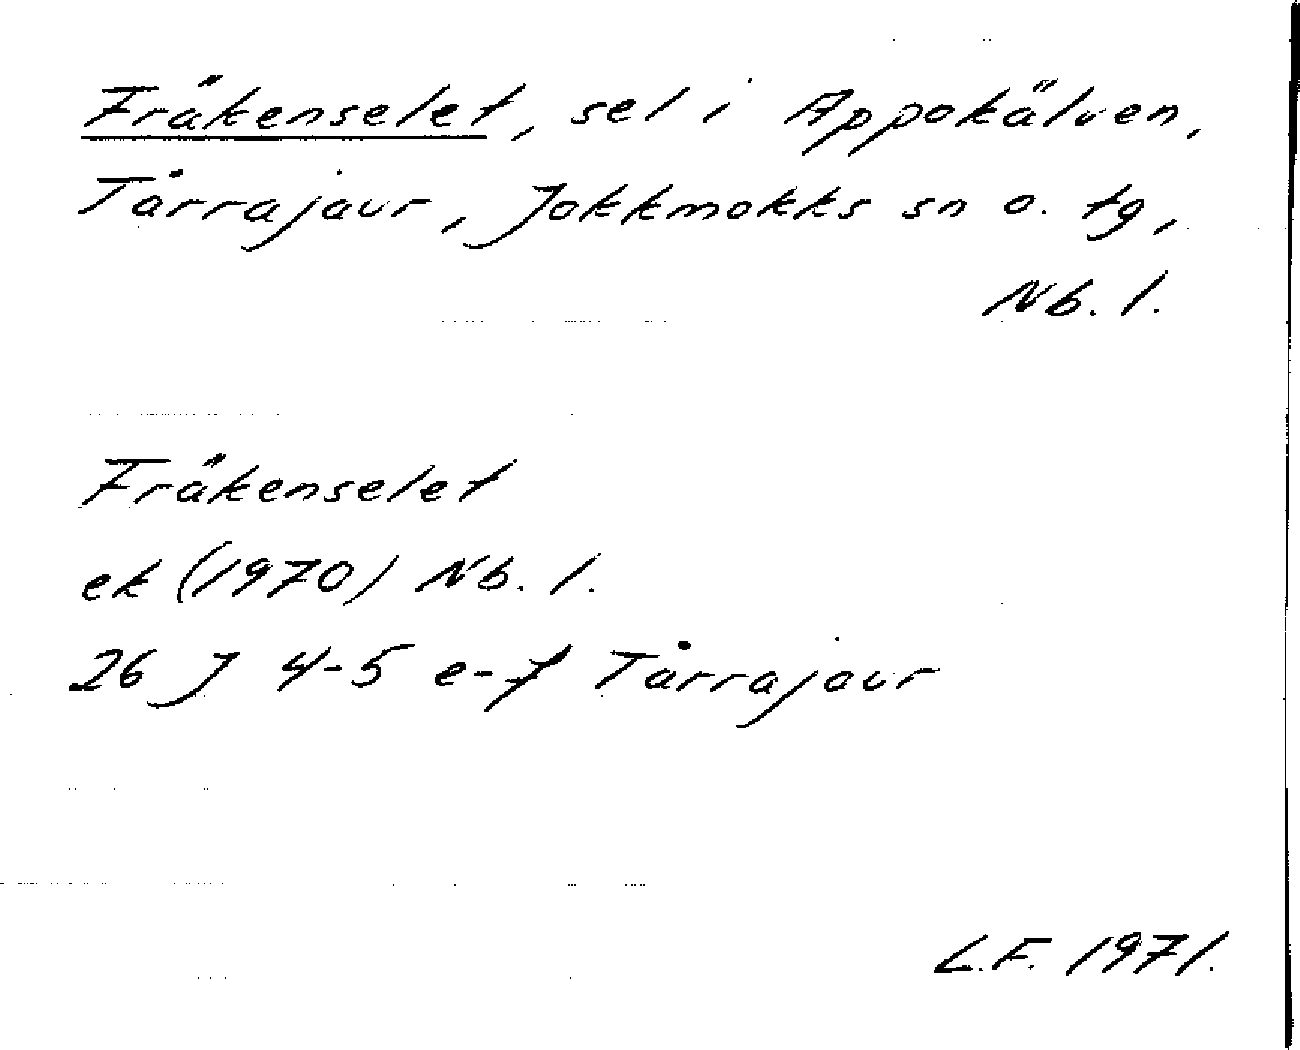 Fräkenselet, sel i Appokälven,
Tårrajaur, Jokkmokks sn o. tg,
Nb. l.
Fräkenselet
ek (1970) Nb. l.
26 J 4-5 e-f Tårrajaur
L.F. 1971.